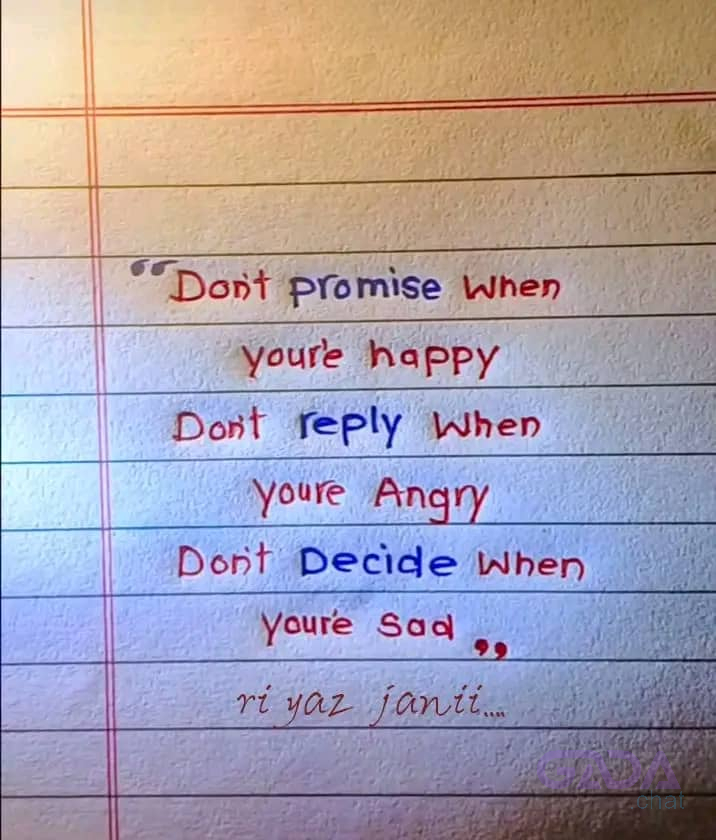 “Don't promise When
your'e happy
Don't reply When
youre Angry
Don't Decide When
your'e Sad „
ri yaz janii....
chat